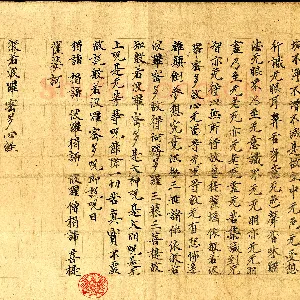 垢不淨不增不減是故空中无色无受想
行識无眼耳鼻舌身意无色聲香味觸
法无眼界乃至无意識界无无明亦无无明
盡乃至无老死亦无老死盡无苦集滅道无
智亦无得以无所得故菩提薩埵依般若波
羅蜜多故心无罣礙无罣礙故无有恐怖遠
離顛倒夢想究竟涅槃三世諸佛依般若
波羅蜜多故得阿耨多羅三藐三菩提故
知般若波羅蜜多是大神呪是大明呪是无
上呪是无等等呪能除一切苦真實不虛
故說般若波羅蜜多呪即說呪曰
揭諦 揭諦 波羅揭諦 波羅僧揭諦 菩提
薩婆訶
般若波羅蜜多心經